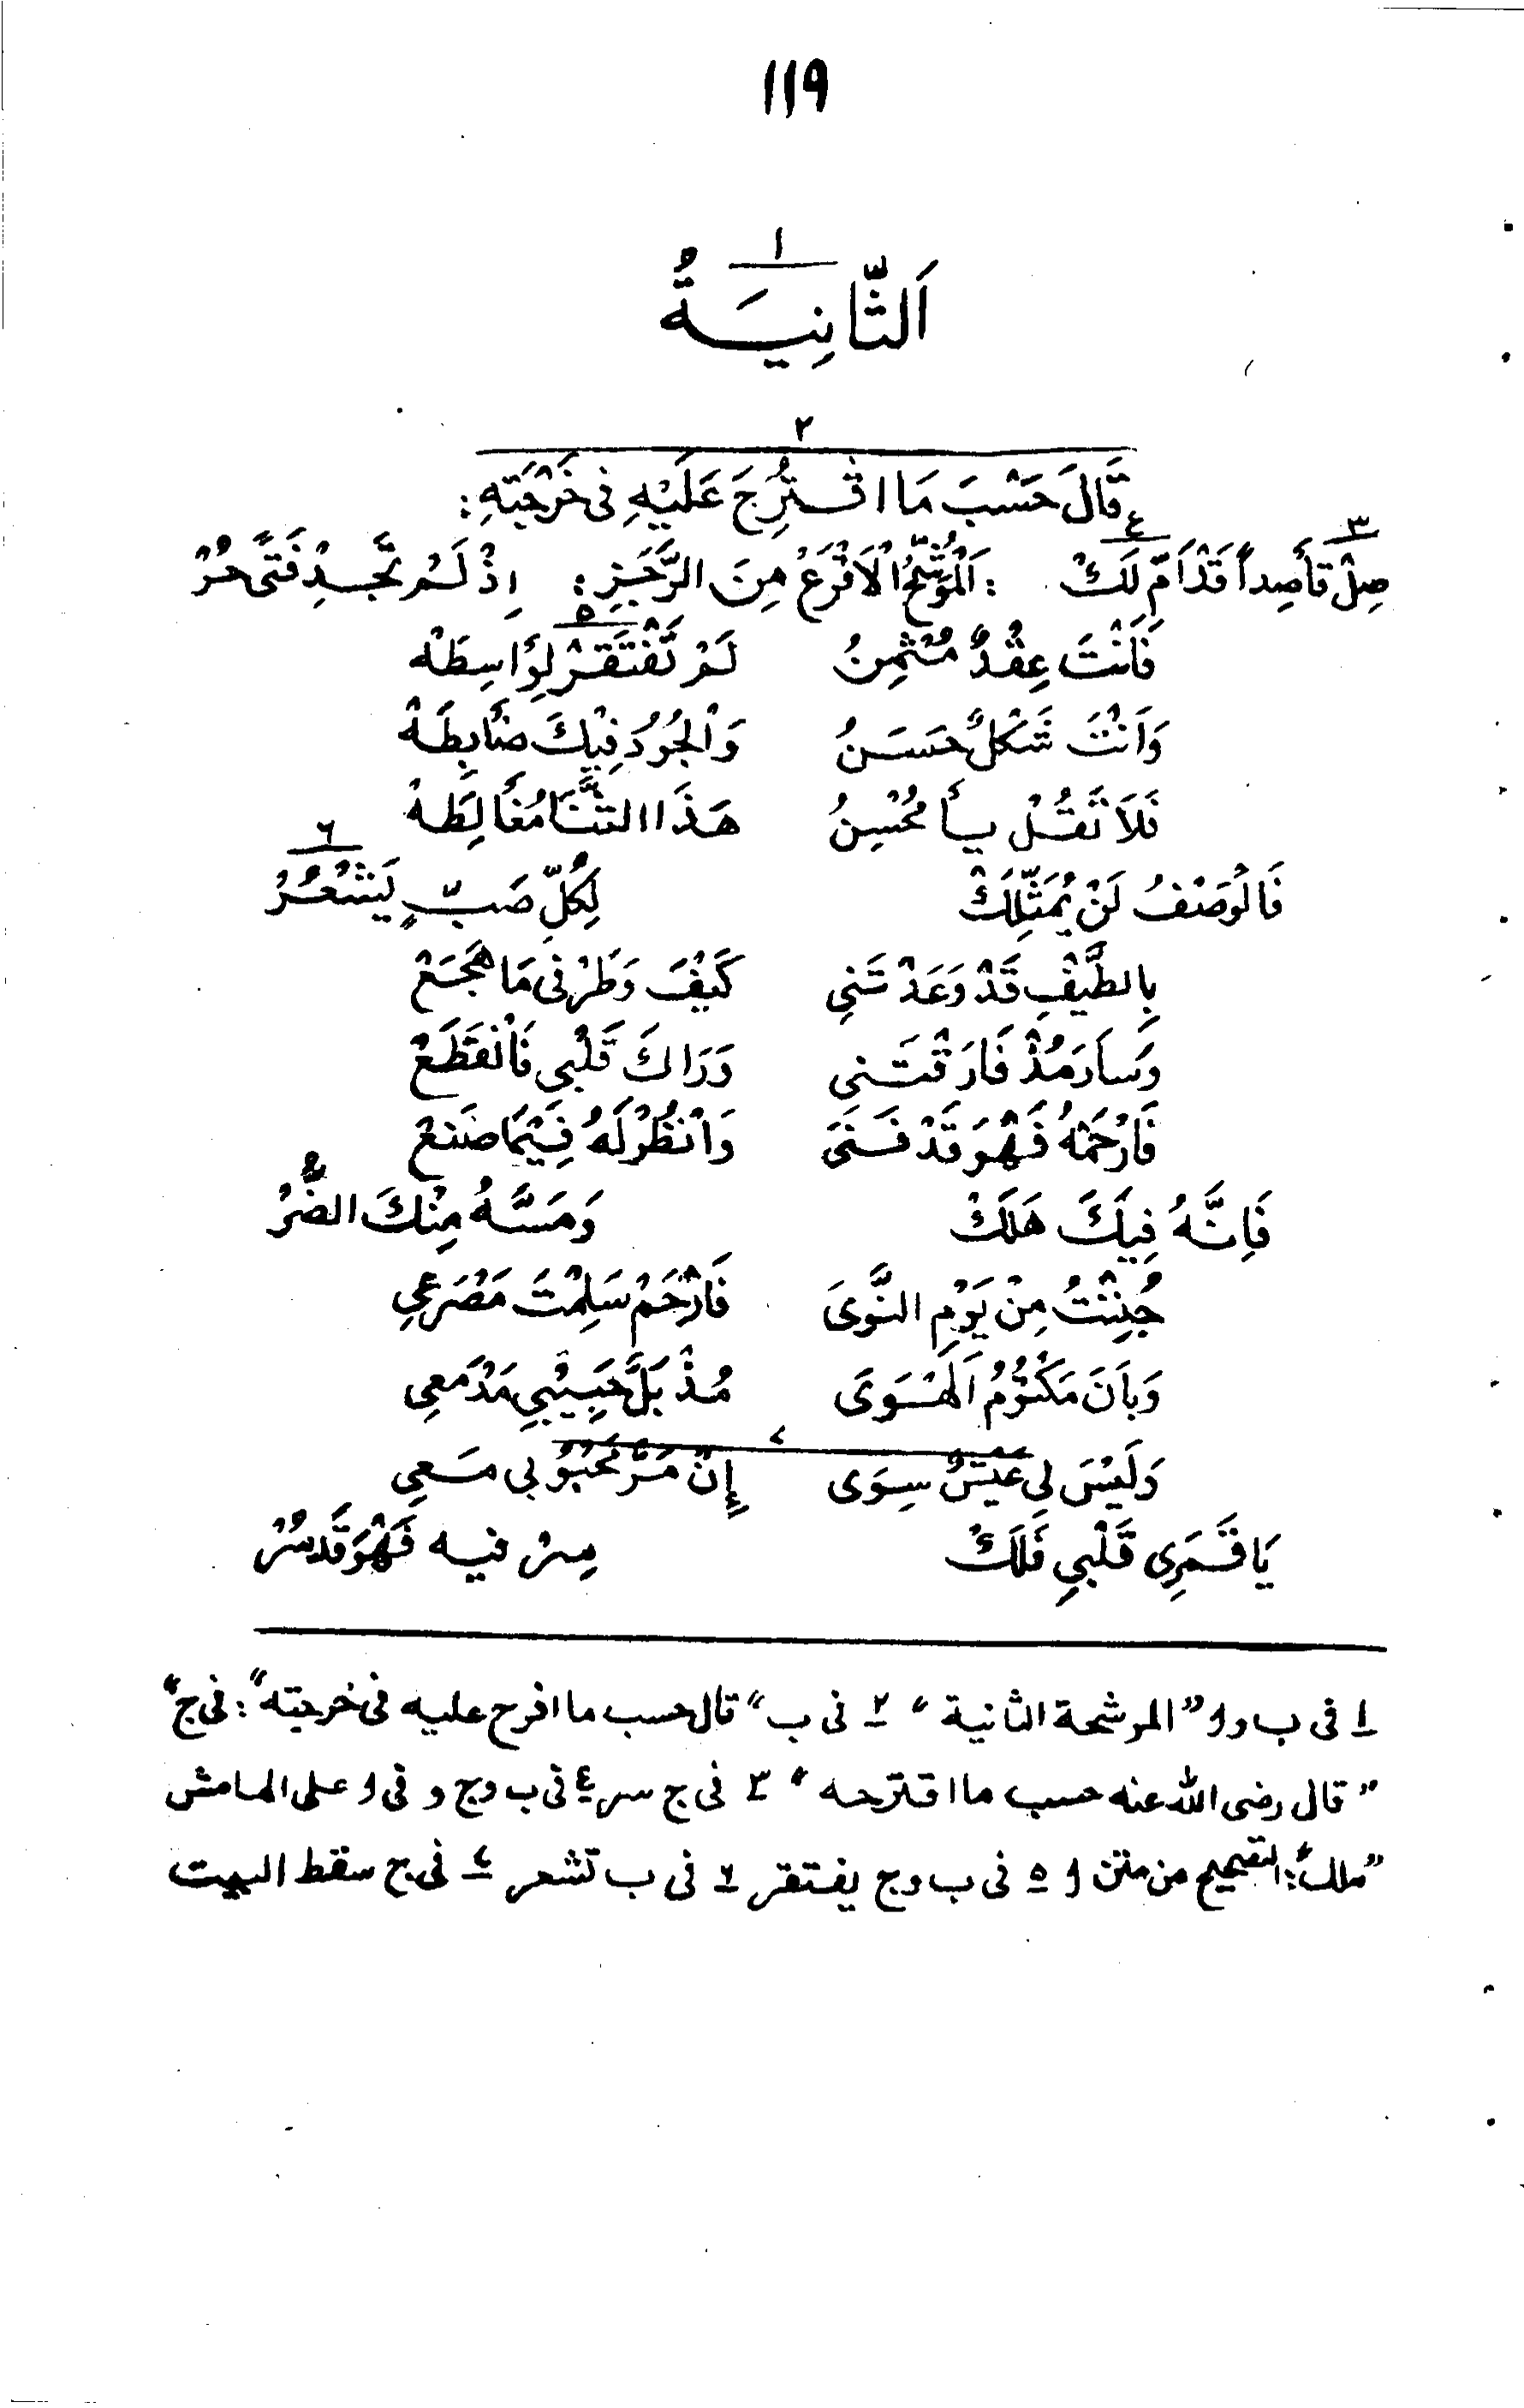 ١١٩
١
اَلثَّانِيَةُ
٢
قَالَ حَسْبَ مَا اقْتُرِحَ عَلَيْهِ فى خَرْجَتِهِ :
٣ ٤
صِلْ قَاصِداً قَدْ اَمَّ لَكْ : اَلْمُوَشَّحُ الْاَقْرَعُ مِنَ الرَّجَزِ : اِذْ لَمْ تَجِدْ فَتًى حُرْ
٥
فَاَنْتَ عِقْدٌ مُثْمِنُ لَمْ تَفْتَقِرْ لِوَاسِطَهْ
وَاَنْتَ شَكْلٌ حَسَنُ وَالْجُودُ فِيْكَ ضَابِطَهْ
فَلاَ تَقُلْ يَا مُحْسِنُ هَذَا الثَّنَا مُغَالَطَهْ
٦
فَالْوَصْفُ لَنْ يُمَثِّلَكْ لِكُلِّ صَبٍّ يَشْعُرْ
بِالطَّيْفِ قَدْ وَعَدْتَنِي كَيْفَ وَطَرْفى مَا هَجَعْ
وَسَارَ مُذْ فَارَقْتَنِي وَرَاكَ قَلْبِي فَانْقَطَعْ
فَارْحَمْهُ فَهْوَ قَدْ فَنَى وَانْظُرْ لَهُ فِيْمَا صَنَعْ
فَاِنَّهُ فِيكَ هَلَكْ وَمَسَّهُ مِنْكَ الضُّرْ
جُنِنْتُ مِنْ يَوْمِ النَّوَى فَارْحَمْ سَلِمْتَ مَصْرَعِي
وَبَانَ مَكْتُوْمُ الْهَوَى مُذْ بَلَّ جَيْبِي مَدْمَعِي
٧
وَلَيْسَ لِي عَيْشٌ سِوَى إِنْ مَرَّ مَحْبُوْبِى مَعِي
يَا قَمَرِى قَلْبِي فَلَكْ سِرْ فيه فَهْوَ قَد سُرْ
١ فى ب و أ "الموشحة الثانية" ٢ فى ب "قال حسب ما افرح عليه فى خرجته" : فى ج
"قال رضى الله عنه حسب ما اقترحه" ٣ فى ج سر ٤ فى ب وج و فى أ على الهامش
"ملك" : التصحيح من متن أ ٥ فى ب وج يفتقر ٦ فى ب تشعر ٧ فى ج سقط البيت